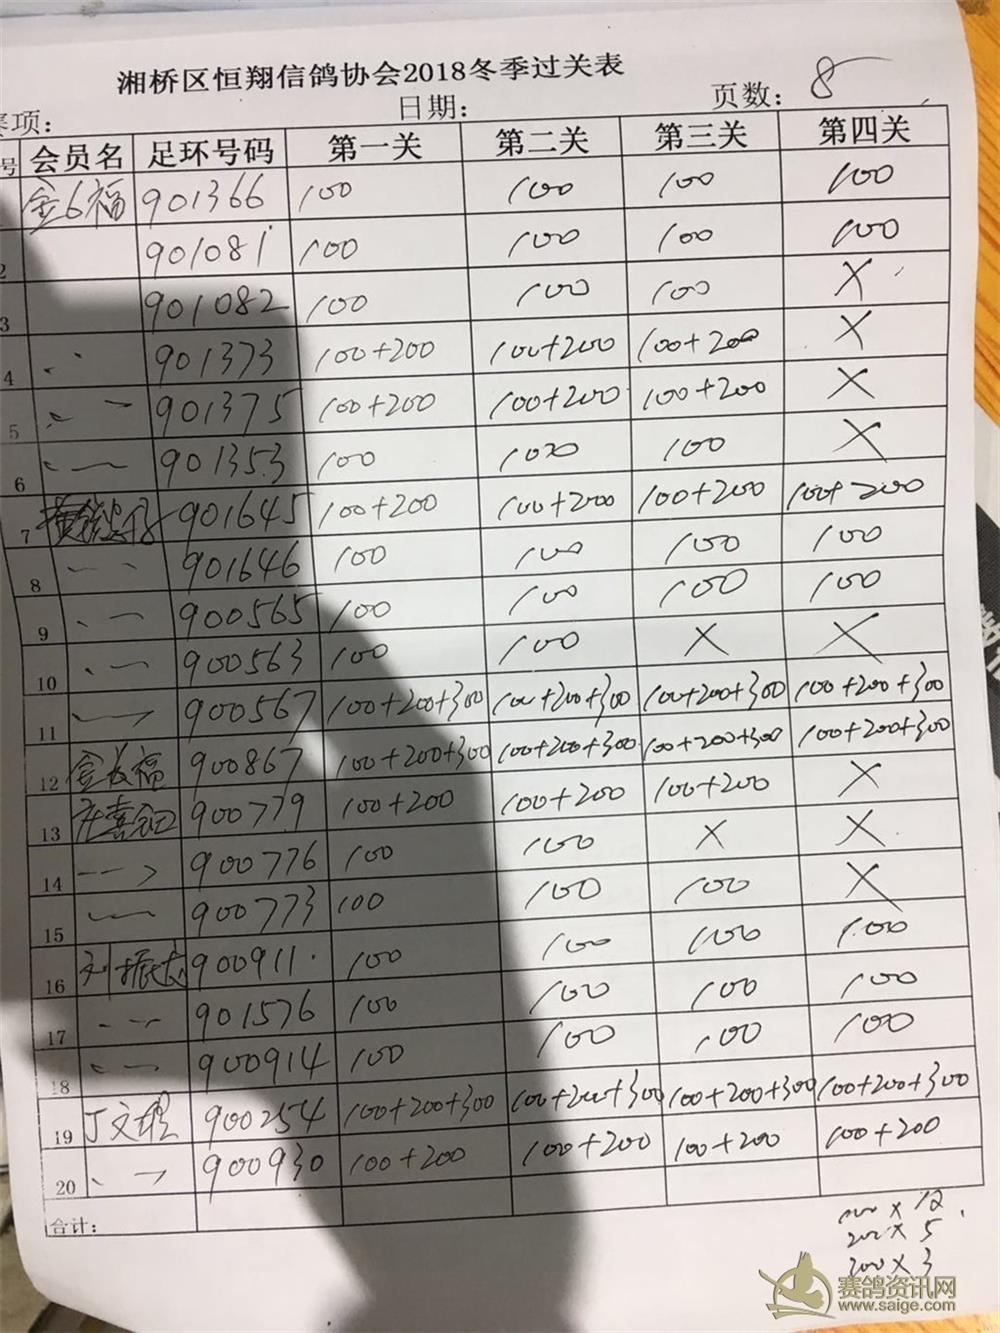 湘桥区恒翔信鸽协会2018冬季过关表
赛项: 日期: 页数: 8
号 会员名 足环号码 第一关 第二关 第三关 第四关
金6福 901366 100 100 100 100
2 901081 100 100 100 100
3 901082 100 100 100 X
4 901373 100+200 100+200 100+200 X
5 901375 100+200 100+200 100+200 X
6 901353 100 100 100 X
7 901645 100+200 100+200 100+200 100+200
8 901646 100 100 100 100
9 900565 100 100 100 100
10 900563 100 100 X X
11 900567 100+200+300 100+200+300 100+200+300 100+200+300
12 金长福 900867 100+200+300 100+200+300 100+200+300 100+200+300
13 900779 100+200 100+200 100+200 X
14 900776 100 100 X X
15 900773 100 100 100 X
16 刘振 900911 100 100 100 100
17 901576 100 100 100 100
18 900914 100 100 100 100
19 丁文 900254 100+200+300 100+200+300 100+200+300 100+200+300
20 900930 100+200 100+200 100+200 100+200
合计:
100 X 12
200 X 5
300 X 3
赛鸽资讯网
www.saige.com